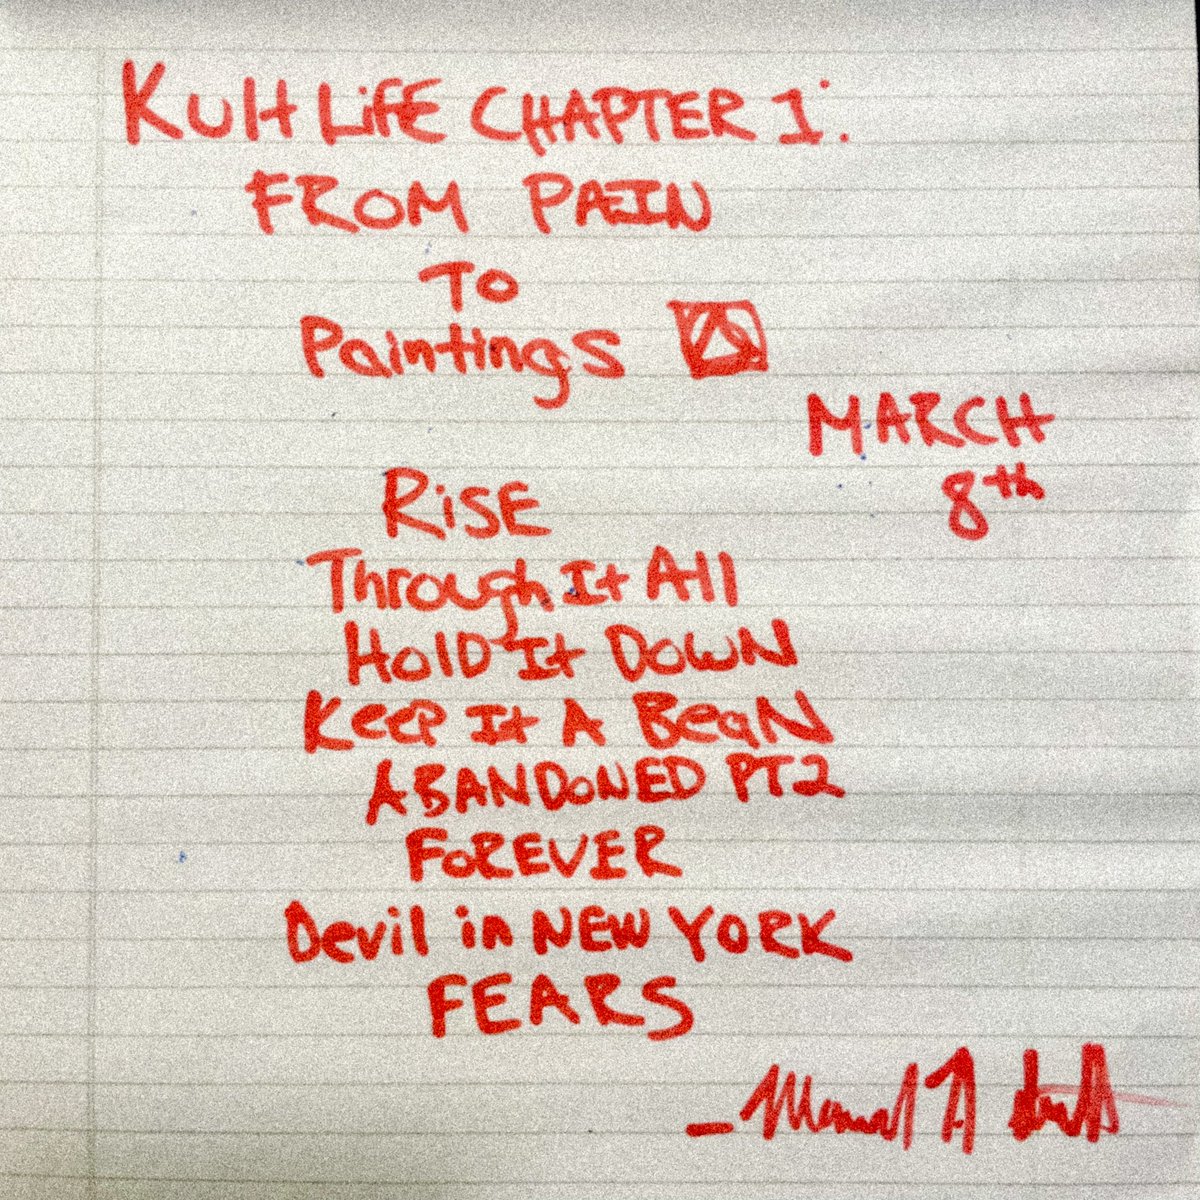 Kult Life CHAPTER 1:
FROM PAIN
To
Paintings
MARCH
8th
RiSE
Through It All
Hold It Down
Keep It A Bean
ABANDONED PT2
FOREVER
Devil in NEW YORK
FEARS